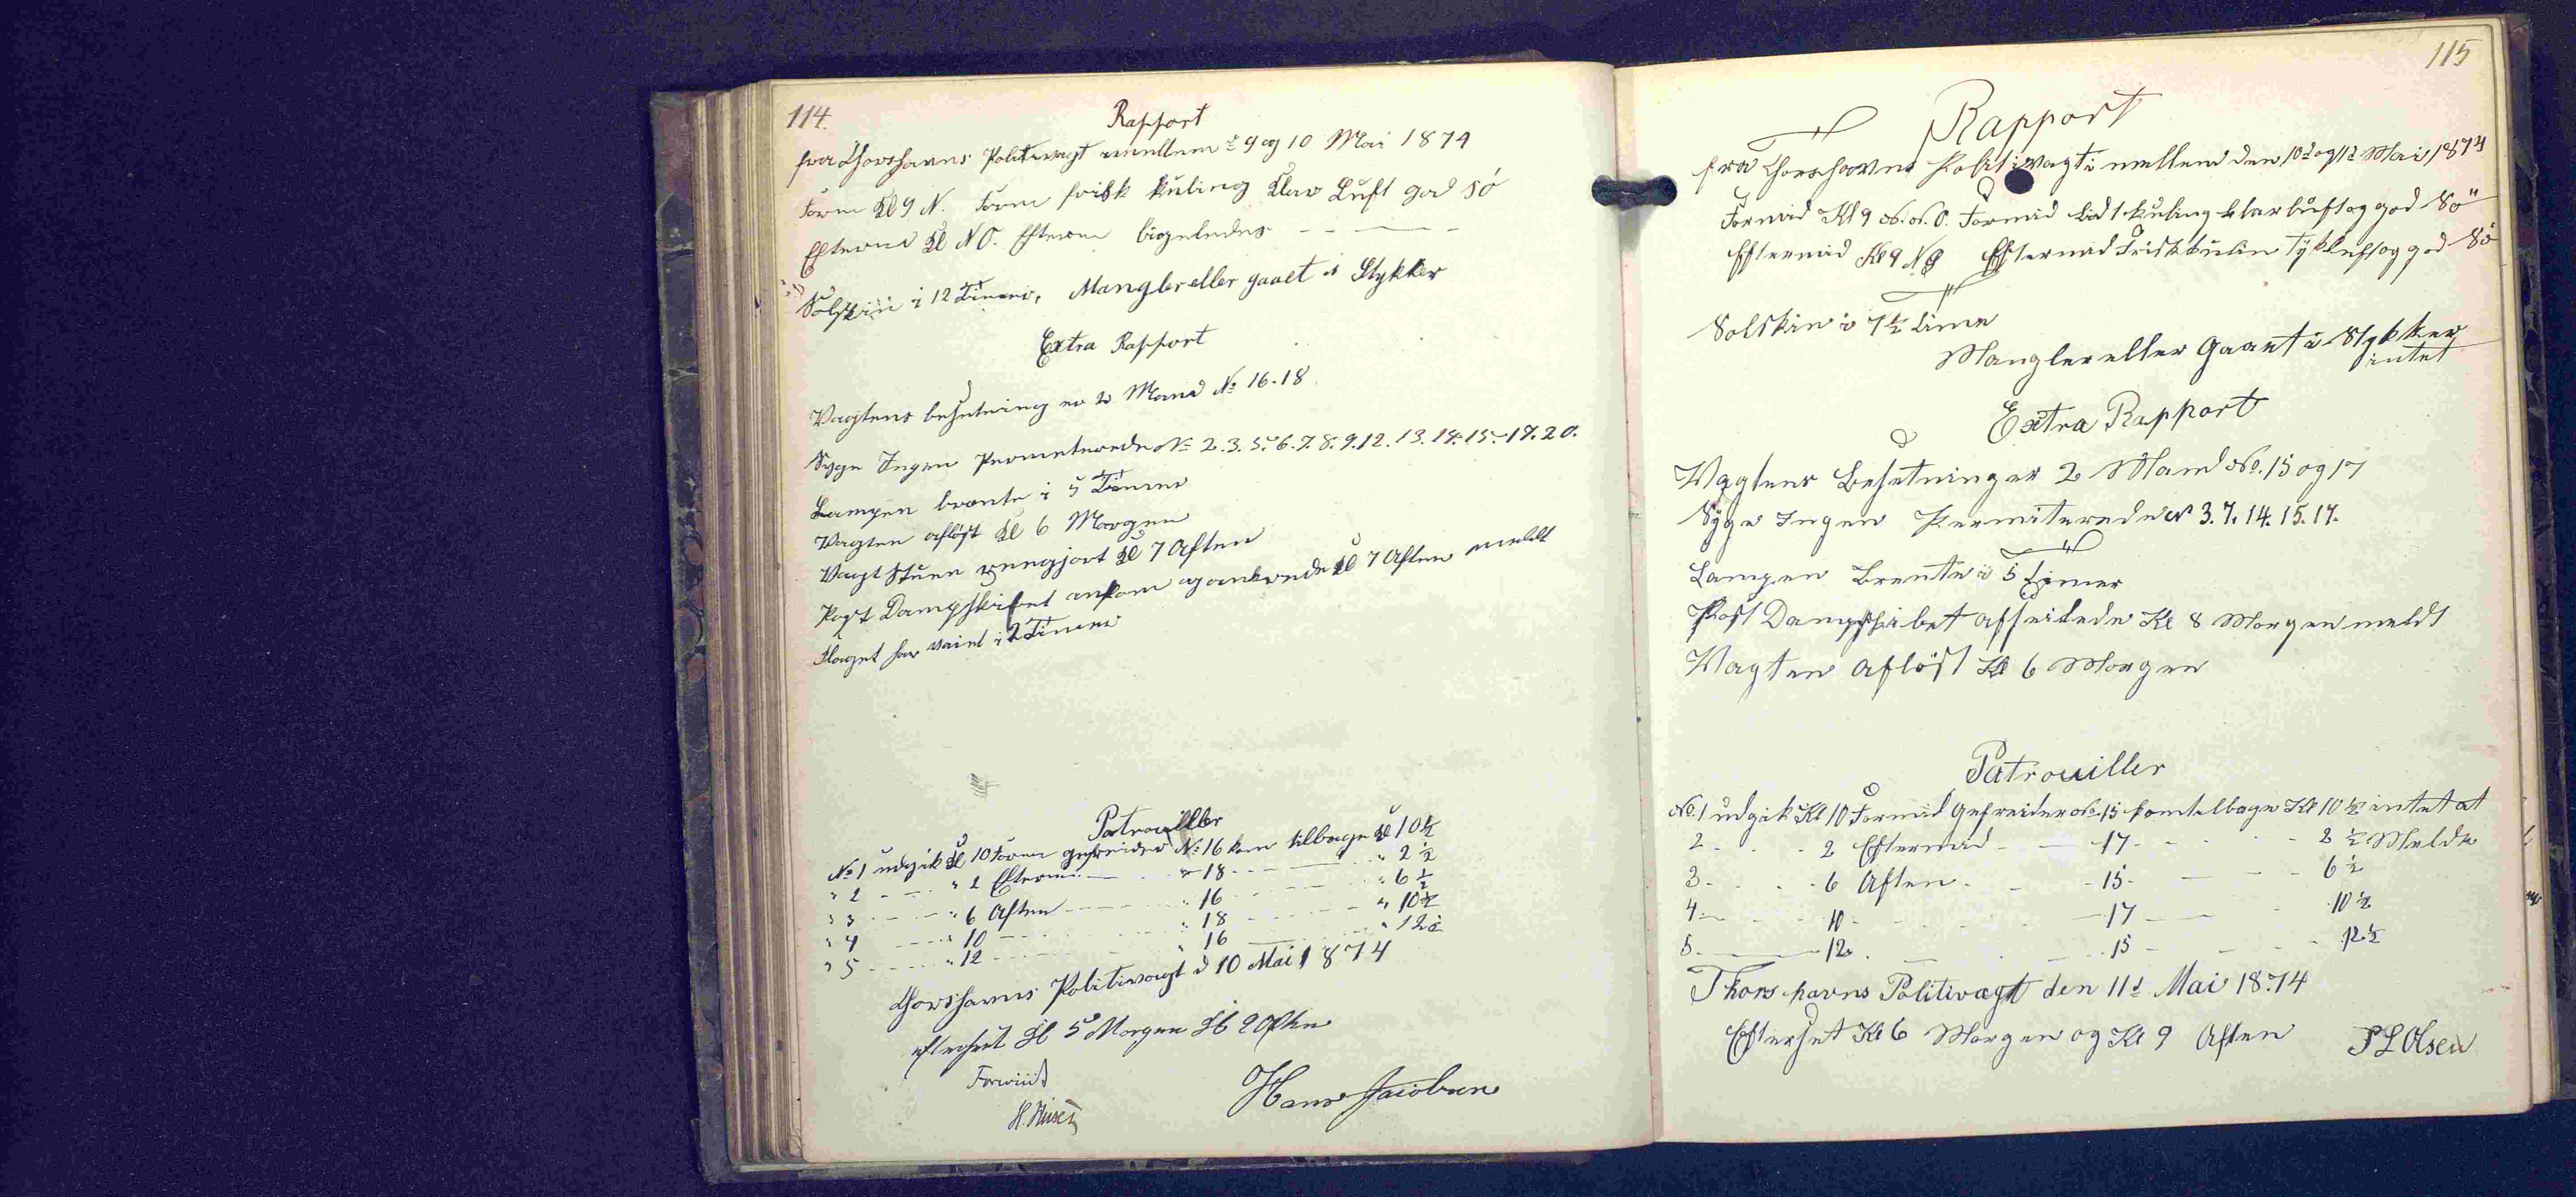 114.
Rapport
fra Thorshavns Politivagt imellem d 9 og 10 Mai 1874
Form Kl 9 N. Form frisk Kuling Klar Luft god Sö
Efterm Kl NO. Efterm ligeledes
Solskin i 12 Timer, Mangler eller gaaet i Stykker
Extra Rapport
Vagtens besetning er 2 Mand No 16.18
Syge Ingen Permeterede No 2.3.5.6.7.8.9.12.13.14.15.17.20.
Lampen brente i 5 Timer
Vagten aflöst Kl 6 Morgen
Vagt Stuen rengjort Kl 7 Aften
Post Dampskibet ankom og ankrede Kl 7 Aften meldt
Flaget har vaiet i 2 Timer
Patrouiller
No 1 udgik Kl 10 Form gefreider No 16 kom tilbage Kl 10½
" 2 " 2 Efterm " 18 " 2½
" 3 " 6 Aften " 16 " 6½
" 4 " 10 " 18 " 10½
" 5 " 12 " 16 " 12½
Thorshavns Politivagt d 10 Mai 1874
efterset Kl 5 Morgen Kl 9 Aften
Hans Jacobsen
115
Rapport
fra Thorshavns Politivagt imellem den 10d og 11d Mai 1874
Formid Kl 9 N.N.O. Formid Lidt kuling klar luft og god Sö
Eftermid Kl 9 NO Eftermid Frisk kulin Tyk luft og god Sö
Solskin i 7½ Time
Mangler eller Gaaet i Stykker
intet
Extra Rapport
Vagtens Besetning er 2 Mand No. 15 og 17
Syge Ingen Permiterede N 3.7.14.15.17.
Lampen Brente i 5 Timer
Post Dampskibet afseilede Kl 8 Morgen meldt
Vagten aflöst Kl 6 Morgen
Patrouiller
No. 1 udgik Kl 10 Formid Gefreider No. 15 kom telbage Kl 10½ intet at
2 - 2 Eftermid - 17 - 2½ Melde
3 - 6 Aften - 15 - 6½
4 - 10 - 17 - 10½
5 - 12 - 15 - 12½
Thorshavns Politivagt den 11d Mai 1874
Efterset Kl 6 Morgen og Kl 9 Aften
P L Olsen